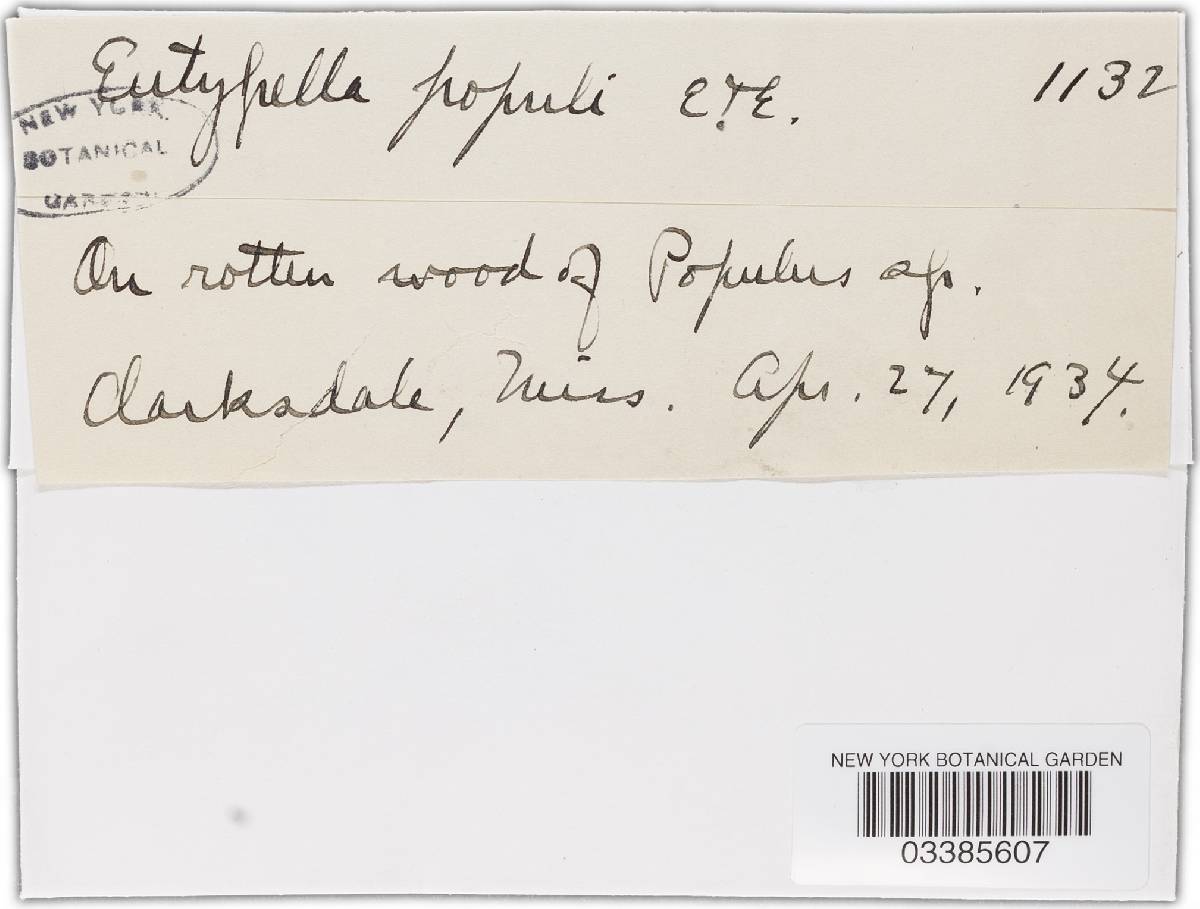 Eutypella populi E.&E. 1132
NEW YORK
BOTANICAL
GARDEN
On rotten wood of Populus sp.
Clarksdale, Miss. Apr. 27, 1934.
NEW YORK BOTANICAL GARDEN
03385607